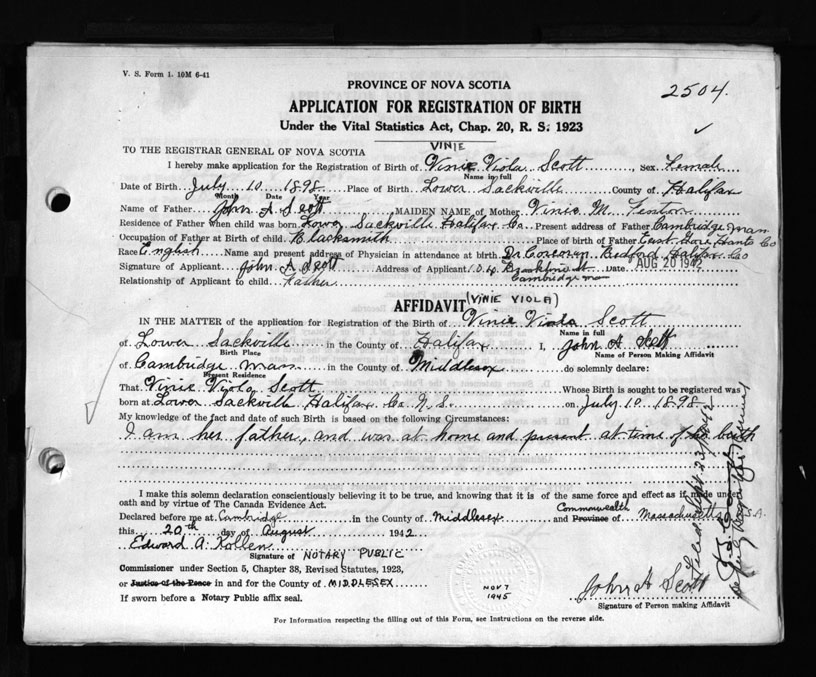 V. S. Form 1. 10M 6-41
2504.
PROVINCE OF NOVA SCOTIA
APPLICATION FOR REGISTRATION OF BIRTH
Under the Vital Statistics Act, Chap. 20, R. S. 1923
VINIE
TO THE REGISTRAR GENERAL OF NOVA SCOTIA
I hereby make application for the Registration of Birth of Vinie Viola Scott, Sex Female
Name in full
Date of Birth July 10 1898 Place of Birth Lower Sackville County of Halifax
Month Date Year
Name of Father John A Scott MAIDEN NAME of Mother Vinie M.
Residence of Father when child was born Lower Sackville Halifax Co. Present address of Father Cambridge Mass
Occupation of Father at Birth of child Blacksmith Place of birth of Father East Gore Hants Co
Race English Name and present address of Physician in attendance at birth Dr Bedford Halifax Co
Signature of Applicant John A Scott Address of Applicant Date AUG 20 1942
Cambridge Mass
Relationship of Applicant to child Father
AFFIDAVIT (VINIE VIOLA)
IN THE MATTER of the application for Registration of the Birth of Vinie Viola Scott
Name in full
of Lower Sackville in the County of Halifax I, John A Scott
Birth Place Name of Person Making Affidavit
of Cambridge Mass in the County of Middlesex do solemnly declare:
Present Residence
That Vinie Viola Scott Whose Birth is sought to be registered was
born at Lower Sackville Halifax Co N.S. on July 10 1898
My knowledge of the fact and date of such Birth is based on the following Circumstances:
I am her father, and was at home and present at time of her birth
I make this solemn declaration conscientiously believing it to be true, and knowing that it is of the same force and effect as if made under
oath and by virtue of The Canada Evidence Act.
Commonwealth
Declared before me at Cambridge in the County of Middlesex and Province of Massachusetts U.S.A.
this 20th day of August 1942
Edward A.
Signature of NOTARY PUBLIC
Commissioner under Section 5, Chapter 38, Revised Statutes, 1923,
or Justice of the Peace in and for the County of MIDDLESEX
If sworn before a Notary Public affix seal.
NOV 7
1945
John A Scott
Signature of Person making Affidavit
For Information respecting the filling out of this Form, see Instructions on the reverse side.